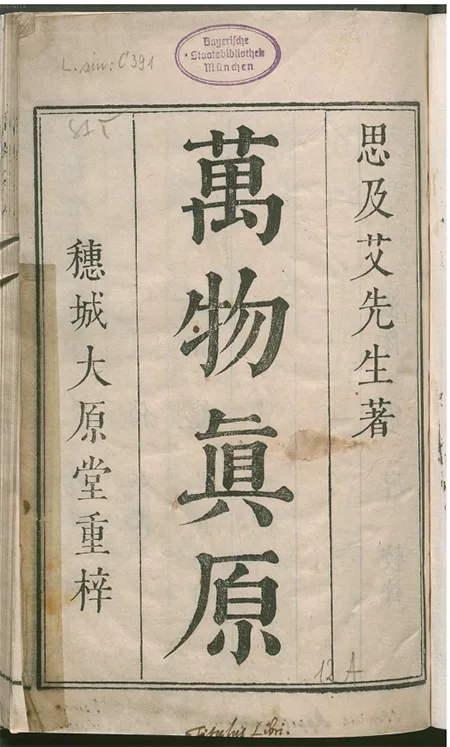 L. sin. C 391
Bayerische
Staatsbibliothek
München
思及艾先生著
萬物眞原
穗城大原堂重梓
12 A
Titulus Libri.